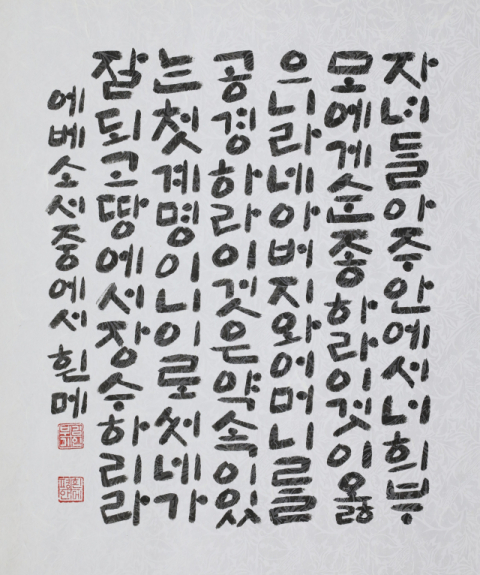 자녀들아주안에서너희부
모에게순종하라이것이옳
으니라네아버지와어머니를
공경하라이것은약속이있
는첫계명이니이로써네가
잘되고땅에서장수하리라
에베소서중에서 흰메